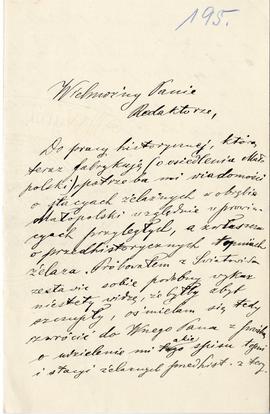 195.
Wielmożny Panie
Redaktorze,
Do pracy historycznej, którą
teraz fabrykuję (o osiedleniu Mało-
polski) potrzeba mi wiadomości
o stacyach żelaznych w obrębie
Małopolski względnie w prowin-
cyach przyległych, a zwłaszcza
o przedhistorycznych topniach
żelaza. Próbowałem z Światowida
zestawić sobie podobny wykaz
niestety widzę, że byłby zbyt
szczupły, ośmielam się tedy
zwrócić do Wnego Pana z prośbą
o udzielenie mi spisu tych
i stacyi żelaznych przedhist. z